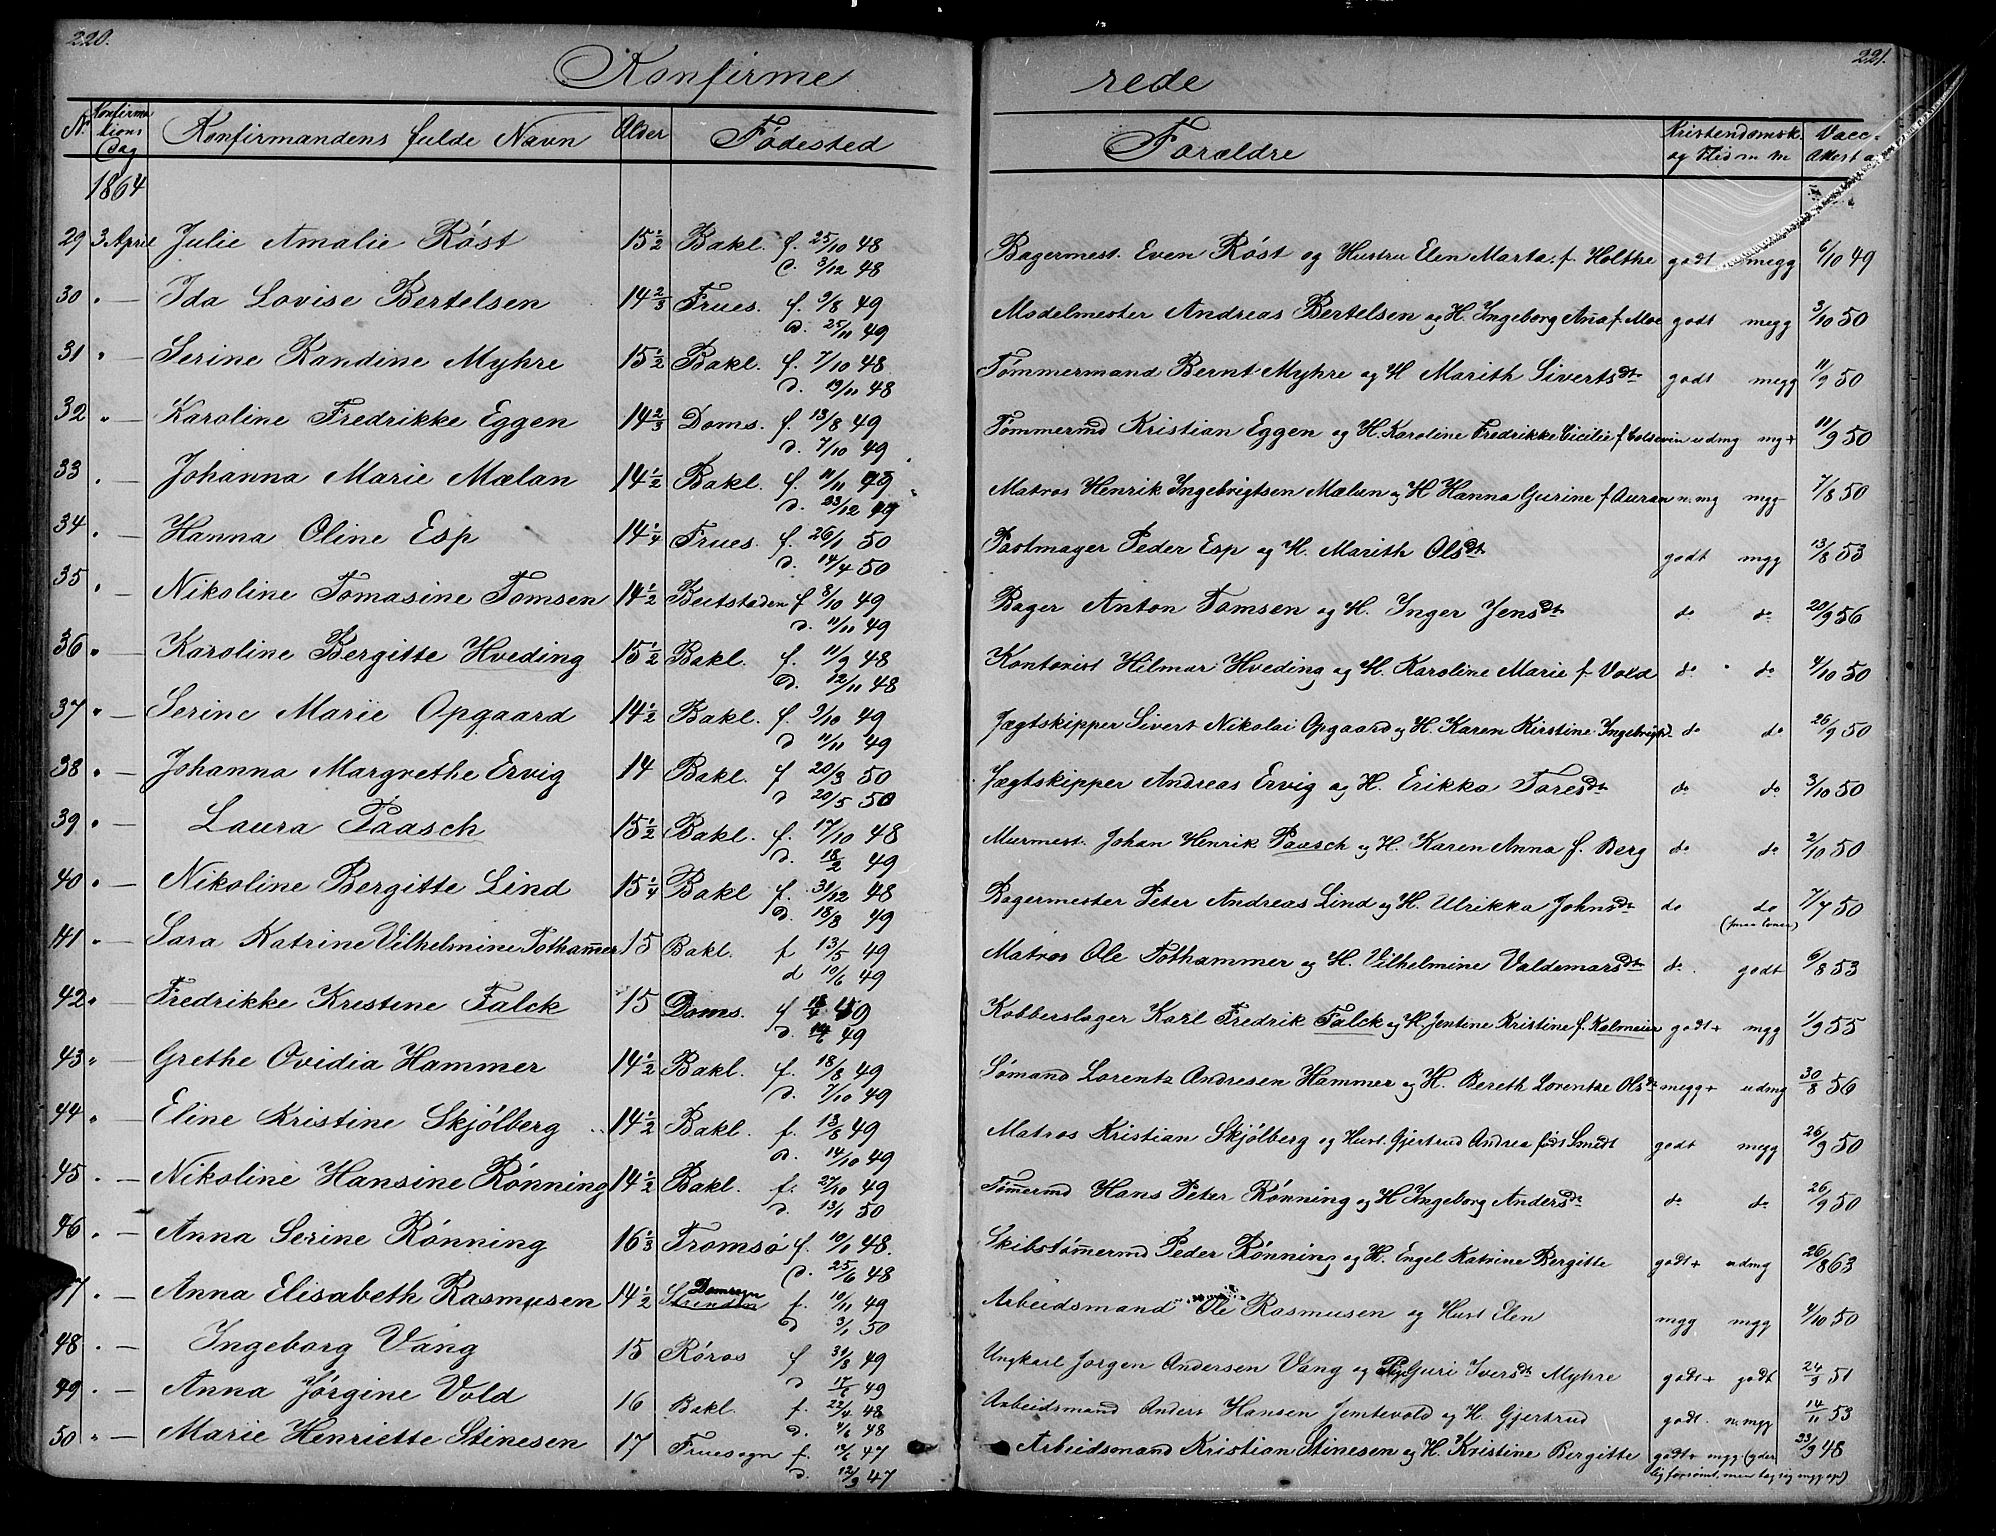 220.
221.
Konfirmerede
No Konfirmationsdag Konfirmandens fulde Navn Alder Fødested Forældre Kristendomsk. og Flid m m Vacc. Attest a
1864
29 3 April Julie Amalie Röst 15 1/2 Bakl. f. 25/10 48 Bagermest. Even Röst og Hustru Elen Marta f. Holthe godt megg 6/10 49
d. 3/12 48
30 " — Ida Lovise Bertelsen 14 2/3 Frues. f. 9/8 49 Modelmester Andreas Bertelsen og H. Ingeborg Ana f. Moe godt megg 3/10 50
d. 25/11 49
31 " — Serine Randine Myhre 15 1/2 Bakl. f. 7/10 48 Tömmermand Bernt Myhre og H Marith Sivertsdt godt megg 11/9 50
d. 19/11 48
32 " — Karoline Fredrikke Eggen 14 2/3 Doms. f. 13/8 49 Tömmermd Kristian Eggen og H. Karoline Fredrikke Cicilie f udmg mg+ 11/9 50
d. 7/10 49
33 " — Johanna Marie Mælan 14 1/2 Bakl. f. 11/11 49 Matros Henrik Ingebrigtsen Mælan og H Hanna Gurine f Auran n. mg mgg 7/8 50
d. 23/12 49
34 " — Hanna Oline Esp 14 1/4 Frues. f. 26/1 50 Peder Esp og H. Marith Olsdt godt mgg 13/8 53
d. 14/4 50
35 " — Nikoline Tomasine Tomsen 14 1/2 Beitstaden f 8/10 49 Bager Anton Tomsen og H. Inger Jensdt do do 20/9 56
d. 11/11 49
36 " — Karoline Bergitte Hveding 15 1/2 Bakl. f. 11/9 48 Kontorist Hilmar Hveding og H. Karoline Marie f. Vold do do 4/10 50
d. 12/11 48
37 " — Serine Marie Opgaard 14 1/2 Bakl. f. 9/10 49 Jægtskipper Sivert Nikolai Opgaard og H. Karen Kirstine Ingebrigtd do do 26/9 50
d 11/11 49
38 " — Johanna Margrethe Ervig 14 Bakl. f 20/3 50 Jægtskipper Andreas Ervig og H. Erikka Toresdt do do 3/10 50
d 20/5 50
39 " — Laura Paasch 15 1/2 Bakl. f. 17/10 48 Murmest. Johan Henrik Paasch og H. Karen Anna f. Berg do do 2/10 50
d. 18/2 49
40 " — Nikoline Bergitte Lind 15 1/4 Bakl f. 31/12 48 Bagermester Peter Andreas Lind og H. Ulrikka Johnsdt do do 7/7 50
d. 18/3 49
41 " — Sara Katrine Vilhelmine Tothammer 15 Bakl. f 13/5 49 Matros Ole Tothammer og H. Vilhelmine Valdemarsdt do. godt 6/8 53
d 10/6 49
42 " — Fredrikke Kristine Falck 15 Doms. f 49 Kobberslager Karl Fredrik Falck og H. Jentine Kristine f. Kolmeier godt+ mgg 1/9 55
d. 49
43 " — Grethe Ovidia Hammer 14 1/2 Bakl. f. 18/8 49 Sömand Lorentz Andresen Hammer og H. Bereth Lorentze Olsdt megg+ udmg 30/8 56
d. 7/10 49
44 " — Eline Kristine Skjölberg 14 1/2 Bakl. f. 13/8 49 Matros Kristian Skjölberg og Hust. Gjertrud Andrea födt Smidt godt megg 26/9 50
d. 14/10 49
45 " — Nikoline Hansine Rönning 14 1/2 Bakl. f. 27/10 49 Tömermd Hans Peter Rönning og H Ingeborg Andersdt do do 26/9 50
d. 13/1 50
46 " — Anna Serine Rönning 16 1/3 Tromsö f. 10/1 48. Skibstömermd Peder Rönning og H. Engel Katrine Bergitte godt+ udmg 26/8 63
d. 25/6 48
47 " — Anna Elisabeth Rasmusen 14 1/2 Strinden Domsogn f. 10/11 49 Arbeidsmand Ole Rasmusen og Hust Elen mgg mgg 4/10 50
d 3/1 50
48 " — Ingeborg Vang 15 Röros f 31/3 49 Ungkarl Jörgen Andersen Vang og Guri Iversdt Myhre godt+ godt 24/9 51
d 17/6 49
49 " — Anna Jörgine Vold 16 Bakl. f. 22/4 48 Arbeidsmand Anders Hansen Jemtevold og H. Gjertrud godt. n. mgg 14/11 53
d. 48
50 " — Marie Henriette Stinesen 17 Fruesogn f. 47 Arbeidsmand Kristian Stinesen og H. Kristine Bergitte godt+ mgg 48
d 12/9 47 forsömt, men tag sig mgg op)